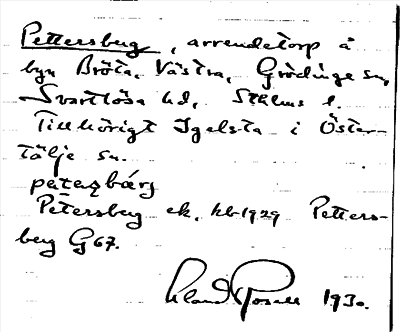 Pettersberg, arrendetorp å
byn Bröta, Västra, Grödinge sn,
Svartlösa hd, Sthlms l.
Tillhörigt Igelsta i Öster-
tälje sn.
petəʂbárj
Petersberg ek, hb 1929 Petters-
berg G 67.
1930.